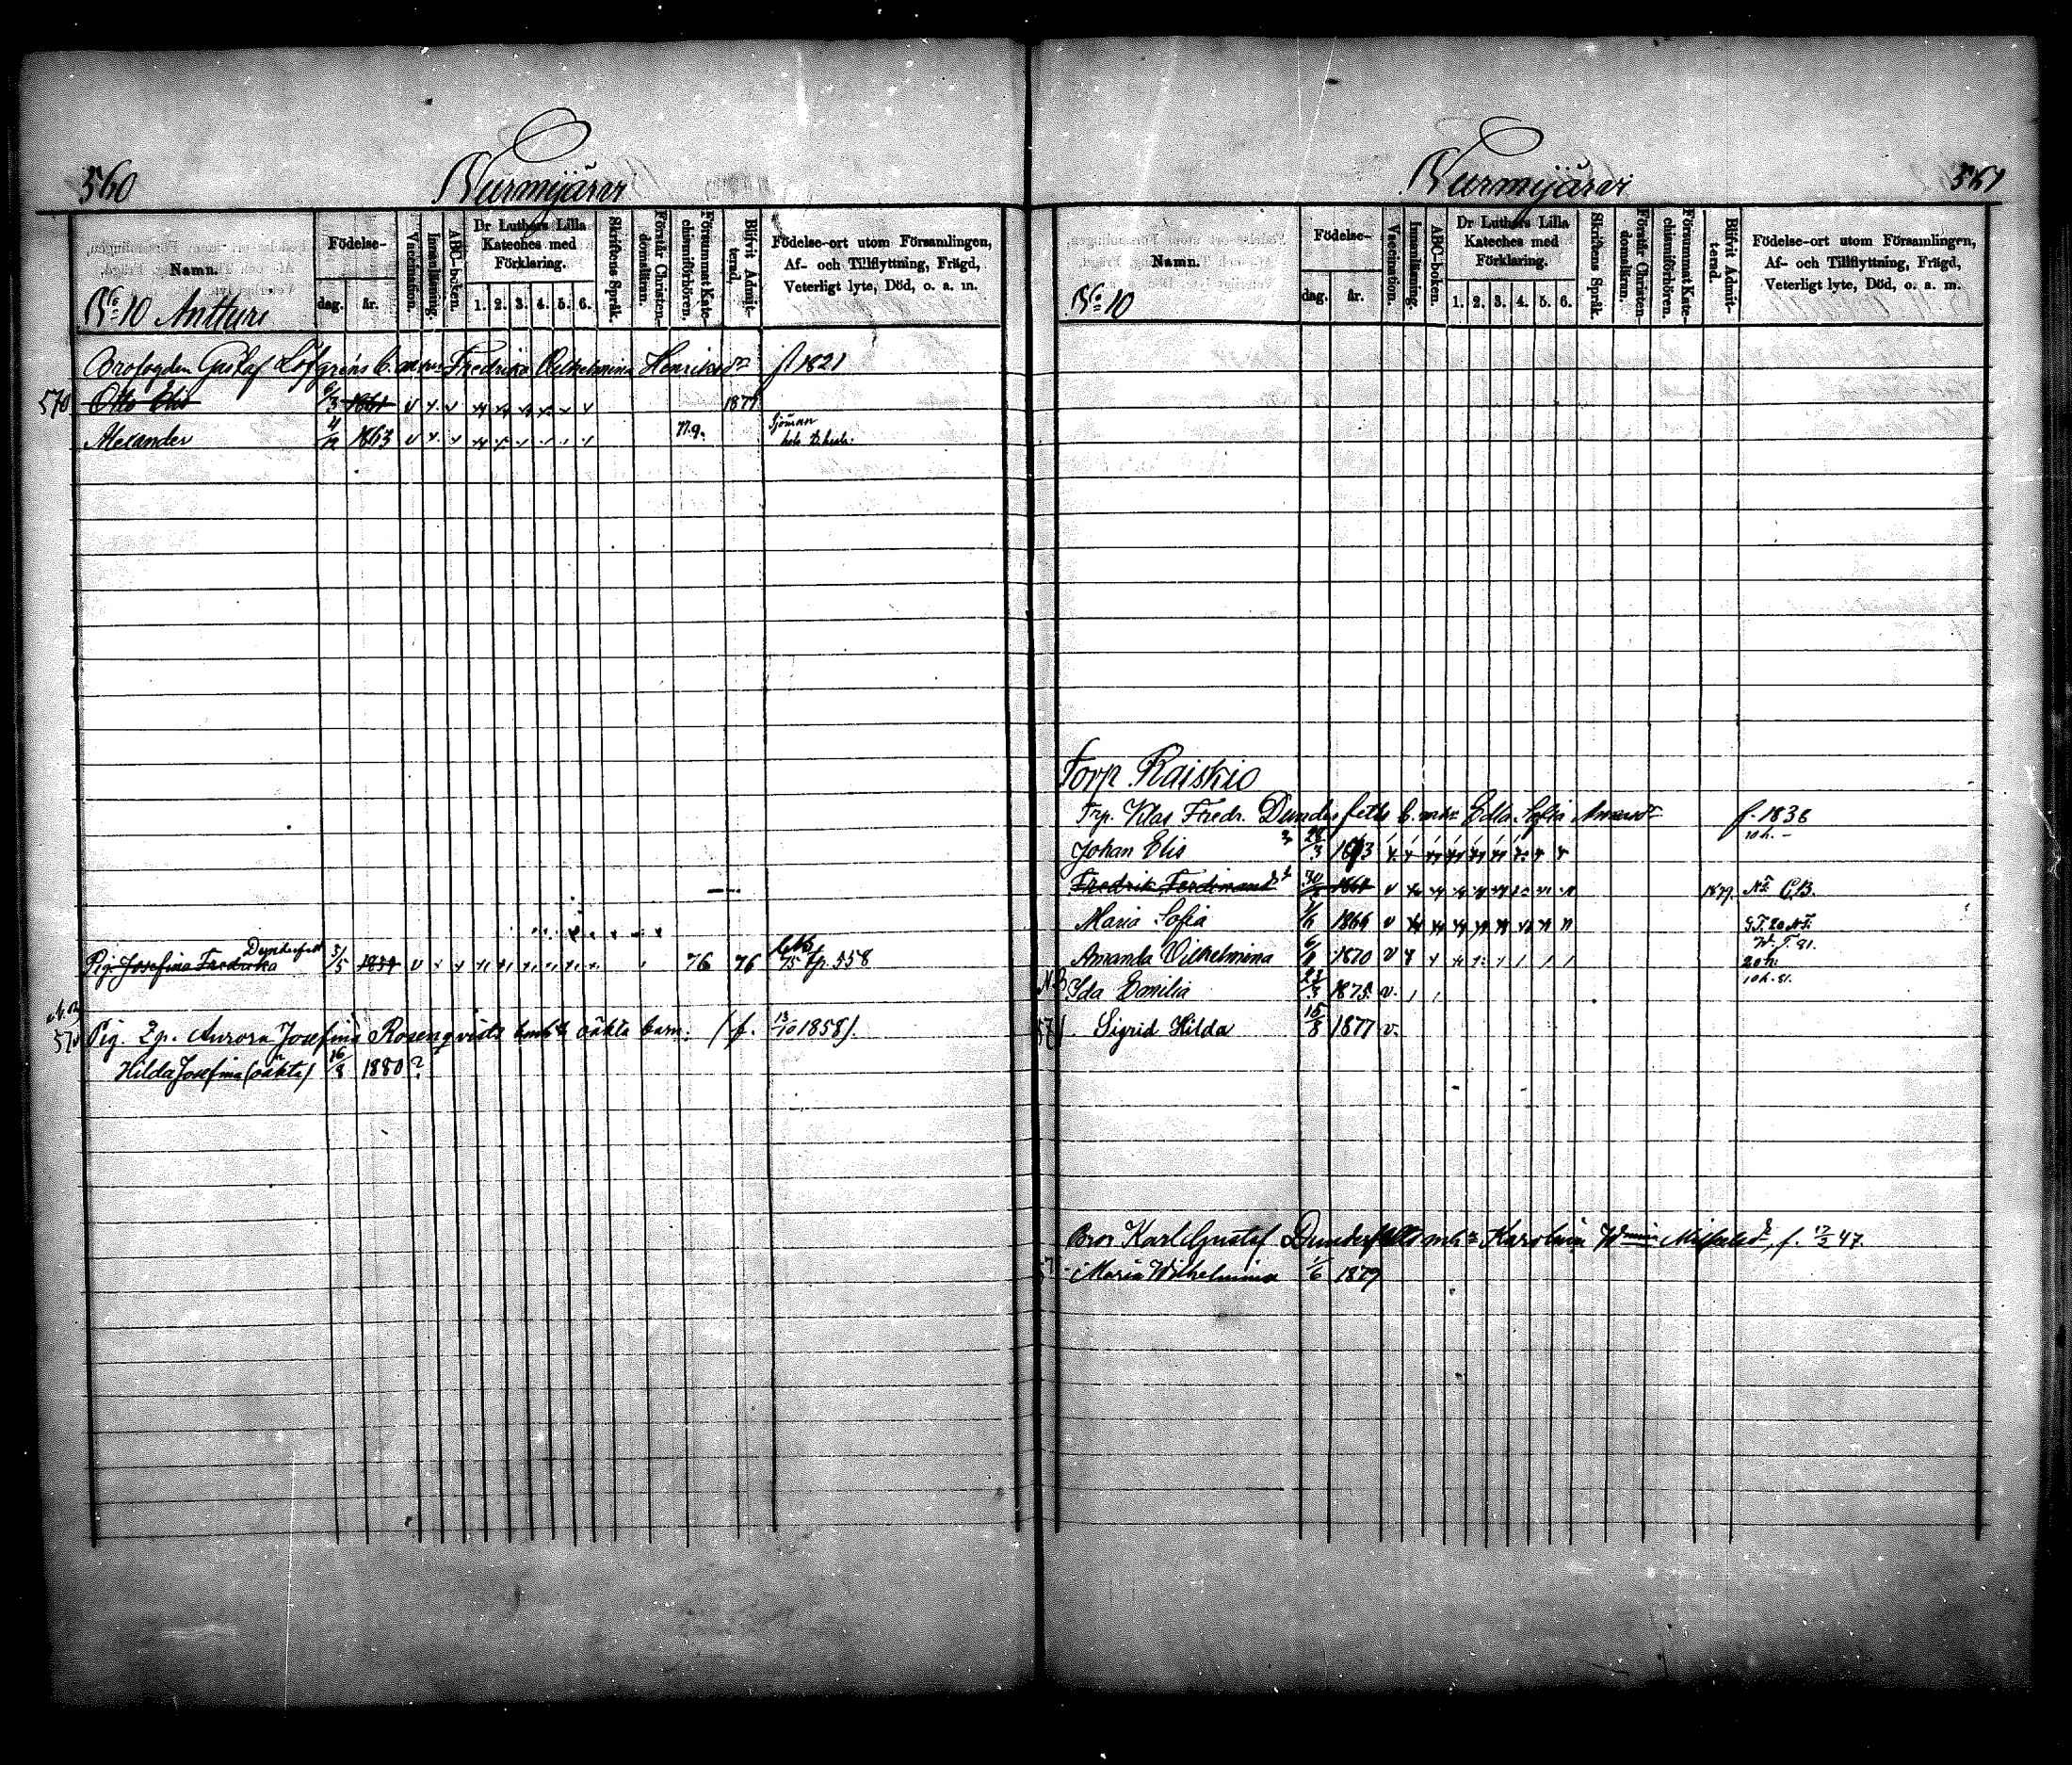 560
Nurmijärvi
Namn.
Födelse-
dag.
år.
Vaccination.
Innanläsning.
ABC-boken.
Dr Luthers Lilla Kateches med Förklaring.
1. 2. 3. 4. 5. 6.
Skriftens Språk.
Förstår Christendomsläran.
Försummat Katechismiförhören.
Blifvit Admitterad.
Födelse-ort utom Församlingen, Af- och Tillflyttning, Frägd, Veterligt lyte, Död, o. a. m.
No 10 Anttura
Brofogden Gustaf Löfgréns b. m h:n Fredrika Vilhelmina Henriksdr f 1821
570 Otto Elis 6/3 1861 1877
Alexander 4/12 1863 n.g. Sjöman
Dunderfelt
Pig. Josefina Fredrika 3/5 1859 76 76 fr. 558
N.B.
Pig. Aurora Josefina Rosenqvists oäkta barn: (f. 13/10 1858).
Hilda Josefina (oäkta) 16/8 1880 ?
561
Nurmijärvi
Namn.
Födelse-
dag.
år.
Vaccination.
Innanläsning.
ABC-boken.
Dr Luthers Lilla Kateches med Förklaring.
1. 2. 3. 4. 5. 6.
Skriftens Språk.
Förstår Christendomsläran.
Försummat Katechismiförhören.
Blifvit Admitterad.
Födelse-ort utom Församlingen, Af- och Tillflyttning, Frägd, Veterligt lyte, Död, o. a. m.
No 10
Torp Raiskio
Trp. Klas Fredr. Dunderfelts b. m h:n Edla Sofia f. 1836
Johan Elis 28/3 1863
Fredrik Ferdinand 30/ 1861 1879.
Maria Sofia 1866
Amanda Vilhelmina 6/ 1870
NB Ida Emilia 23/3 1875 v.
571 Sigrid Hilda 15/8 1877 v.
Bror Karl Gustaf Dunderfelts m h:n Karolina W:mina f. 17/2 47.
Maria Wilhelmina 1/6 1879